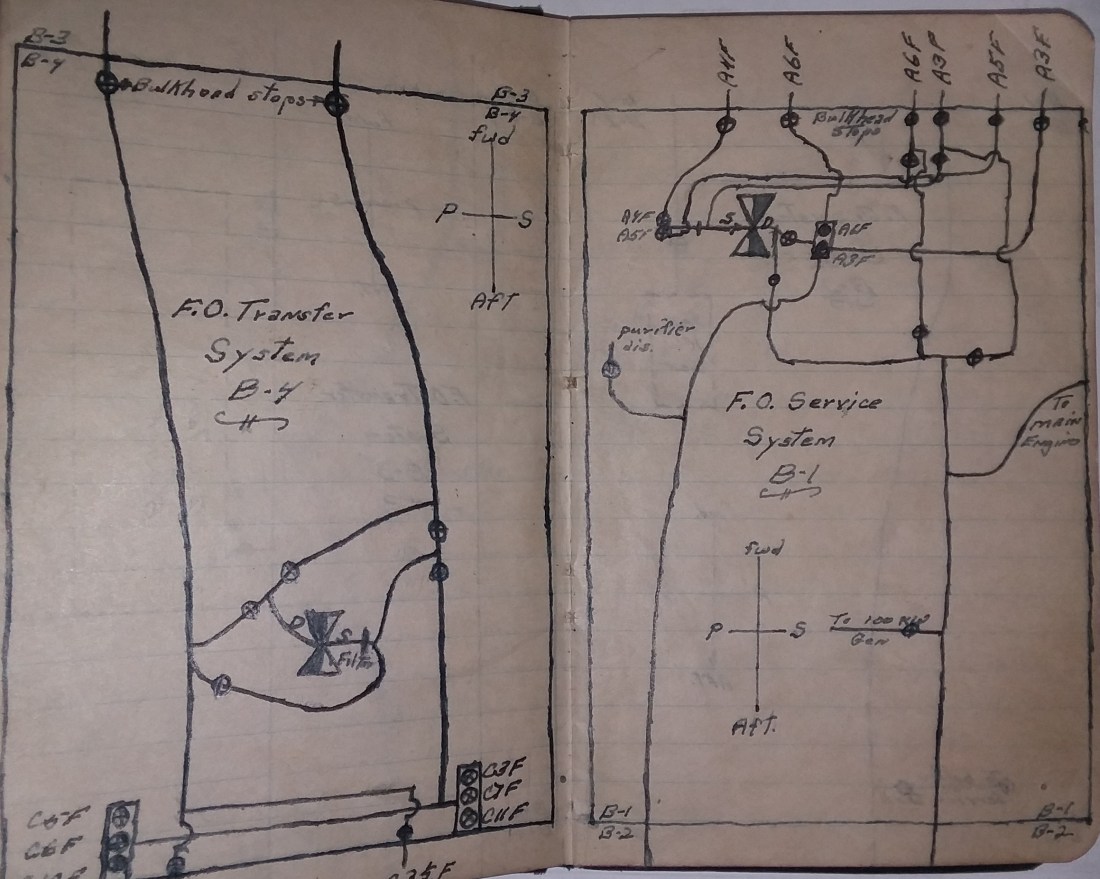 B-3
B-4
Bulkhead stops
B-3
B-4
fwd
P
S
Aft
F.O. Transfer
System
B-4
D
S
Filter
C3F
C7F
C11F
C5F
C6F
C35F
A4F
A6F
A6F
A3P
A5F
A3F
Bulkhead
stops
A4F
A5F
S
D
A6F
A3F
purifier
dis.
F.O. Service
System
B-1
To
main
Engine
fwd
P
S
Aft.
To 100 KW
Gen
B-1
B-2
B-1
B-2